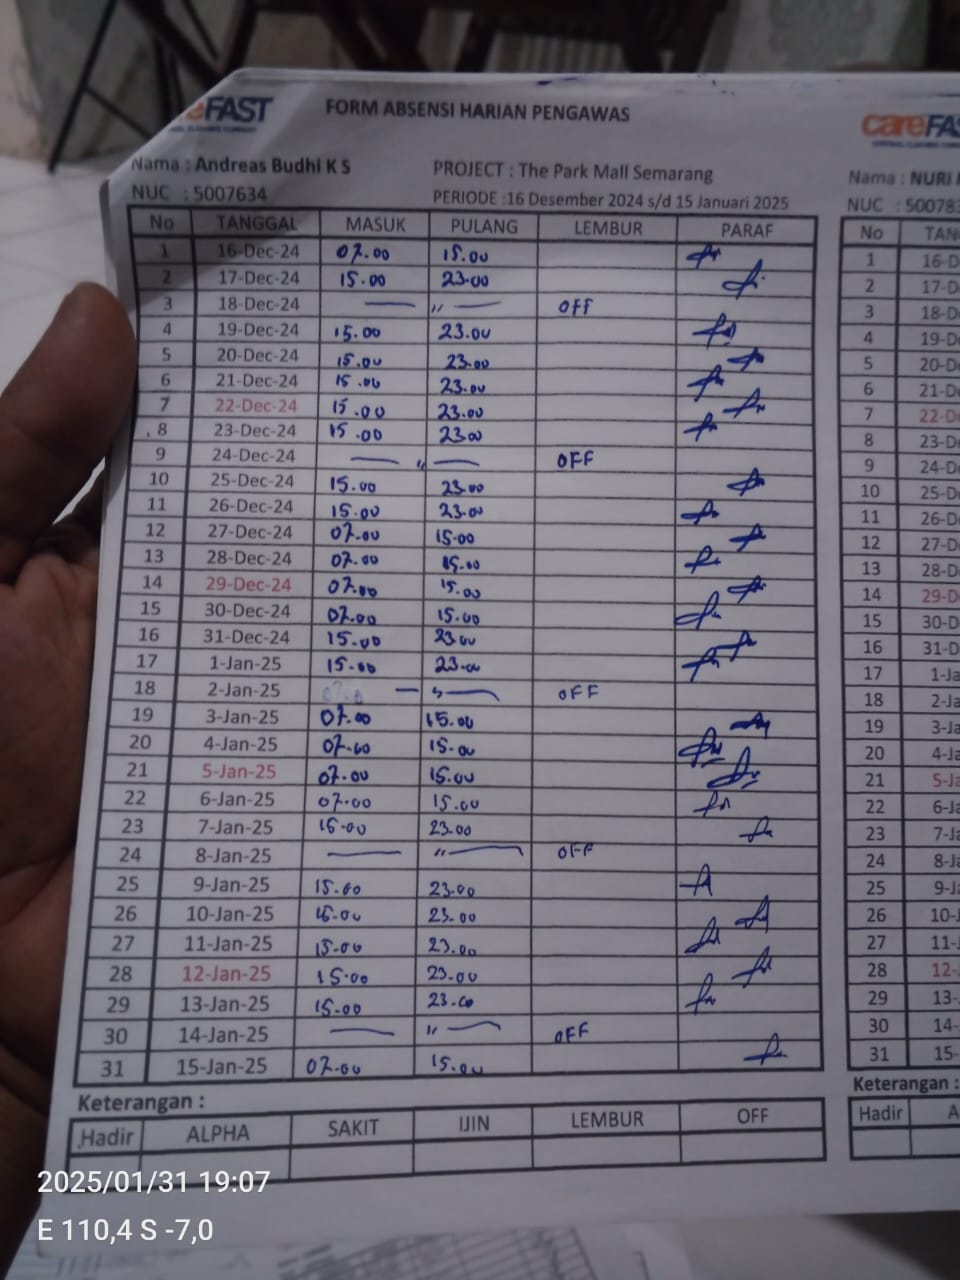 eFAST
FORM ABSENSI HARIAN PENGAWAS
Nama : Andreas Budhi K S PROJECT : The Park Mall Semarang
NUC : 5007634 PERIODE :16 Desember 2024 s/d 15 Januari 2025
No TANGGAL MASUK PULANG LEMBUR PARAF
1 16-Dec-24 07.00 15.00
2 17-Dec-24 15.00 23.00
3 18-Dec-24 — " — OFF
4 19-Dec-24 15.00 23.00
5 20-Dec-24 15.00 23.00
6 21-Dec-24 15.00 23.00
7 22-Dec-24 15.00 23.00
8 23-Dec-24 15.00 23.00
9 24-Dec-24 — " — OFF
10 25-Dec-24 15.00 23.00
11 26-Dec-24 15.00 23.00
12 27-Dec-24 07.00 15.00
13 28-Dec-24 07.00 15.00
14 29-Dec-24 07.00 15.00
15 30-Dec-24 07.00 15.00
16 31-Dec-24 15.00 23.00
17 1-Jan-25 15.00 23.00
18 2-Jan-25 — " — OFF
19 3-Jan-25 07.00 15.00
20 4-Jan-25 07.00 15.00
21 5-Jan-25 07.00 15.00
22 6-Jan-25 07.00 15.00
23 7-Jan-25 15.00 23.00
24 8-Jan-25 — " — OFF
25 9-Jan-25 15.00 23.00
26 10-Jan-25 15.00 23.00
27 11-Jan-25 15.00 23.00
28 12-Jan-25 15.00 23.00
29 13-Jan-25 15.00 23.00
30 14-Jan-25 — " — OFF
31 15-Jan-25 07.00 15.00
Keterangan :
Hadir ALPHA SAKIT IJIN LEMBUR OFF
careFAS
Nama : NURI
NUC : 50078
No TAN
1 16-D
2 17-D
3 18-D
4 19-D
5 20-D
6 21-D
7 22-D
8 23-D
9 24-D
10 25-D
11 26-D
12 27-D
13 28-D
14 29-D
15 30-D
16 31-D
17 1-Ja
18 2-Ja
19 3-Ja
20 4-Ja
21 5-Ja
22 6-Ja
23 7-Ja
24 8-Ja
25 9-Ja
26 10-J
27 11-J
28 12-
29 13-
30 14-
31 15-
Keterangan :
Hadir A
2025/01/31 19:07
E 110,4 S -7,0